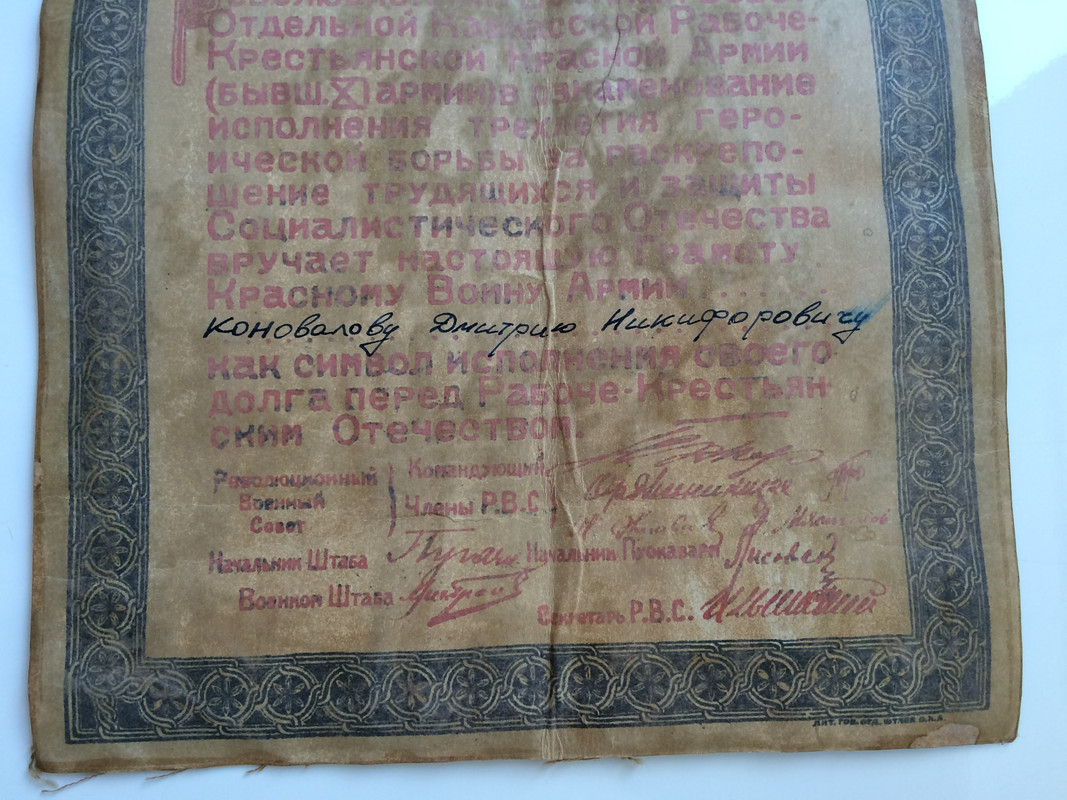 Отдельной Кавказской Рабоче-
Крестьянской Красной Армии
(бывш. XI армии) в ознаменование
исполнения трехлетия геро-
ической борьбы за раскрепо-
щение трудящихся и защиты
Социалистического Отечества
вручает настоящую Грамоту
Красному Воину Армии . . . . . .
Коновалову Дмитрию Никифоровичу
как символ исполнения своего
долга перед Рабоче-Крестьян-
ским Отечеством.
Революционный Военный Совет
Командующий
Члены Р.В.С.
Начальник Штаба Пугачев Начальник Пуокаварм
Военком Штаба Секретарь Р.В.С.
ЛИТ. ТОП. ОТД. ШТАБА О.К.А.